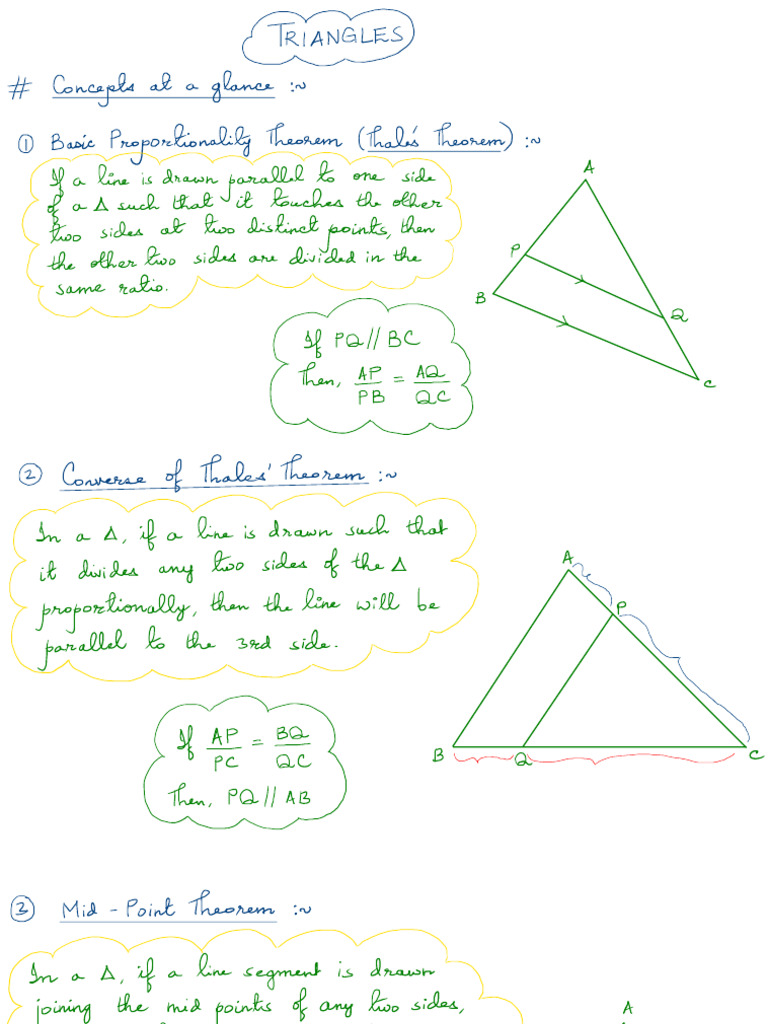 TRIANGLES
# Concepts at a glance :~
① Basic Proportionality Theorem (Thale's Theorem) :~
If a line is drawn parallel to one side
of a Δ such that it touches the other
two sides at two distinct points, then
the other two sides are divided in the
same ratio.
A
P
B
Q
C
If PQ // BC
Then, AP/PB = AQ/QC
② Converse of Thales' Theorem :~
In a Δ, if a line is drawn such that
it divides any two sides of the Δ
proportionally, then the line will be
parallel to the 3rd side.
A
P
B
Q
C
If AP/PC = BQ/QC
Then, PQ // AB
③ Mid - Point Theorem :~
In a Δ, if a line segment is drawn
joining the mid points of any two sides,
A